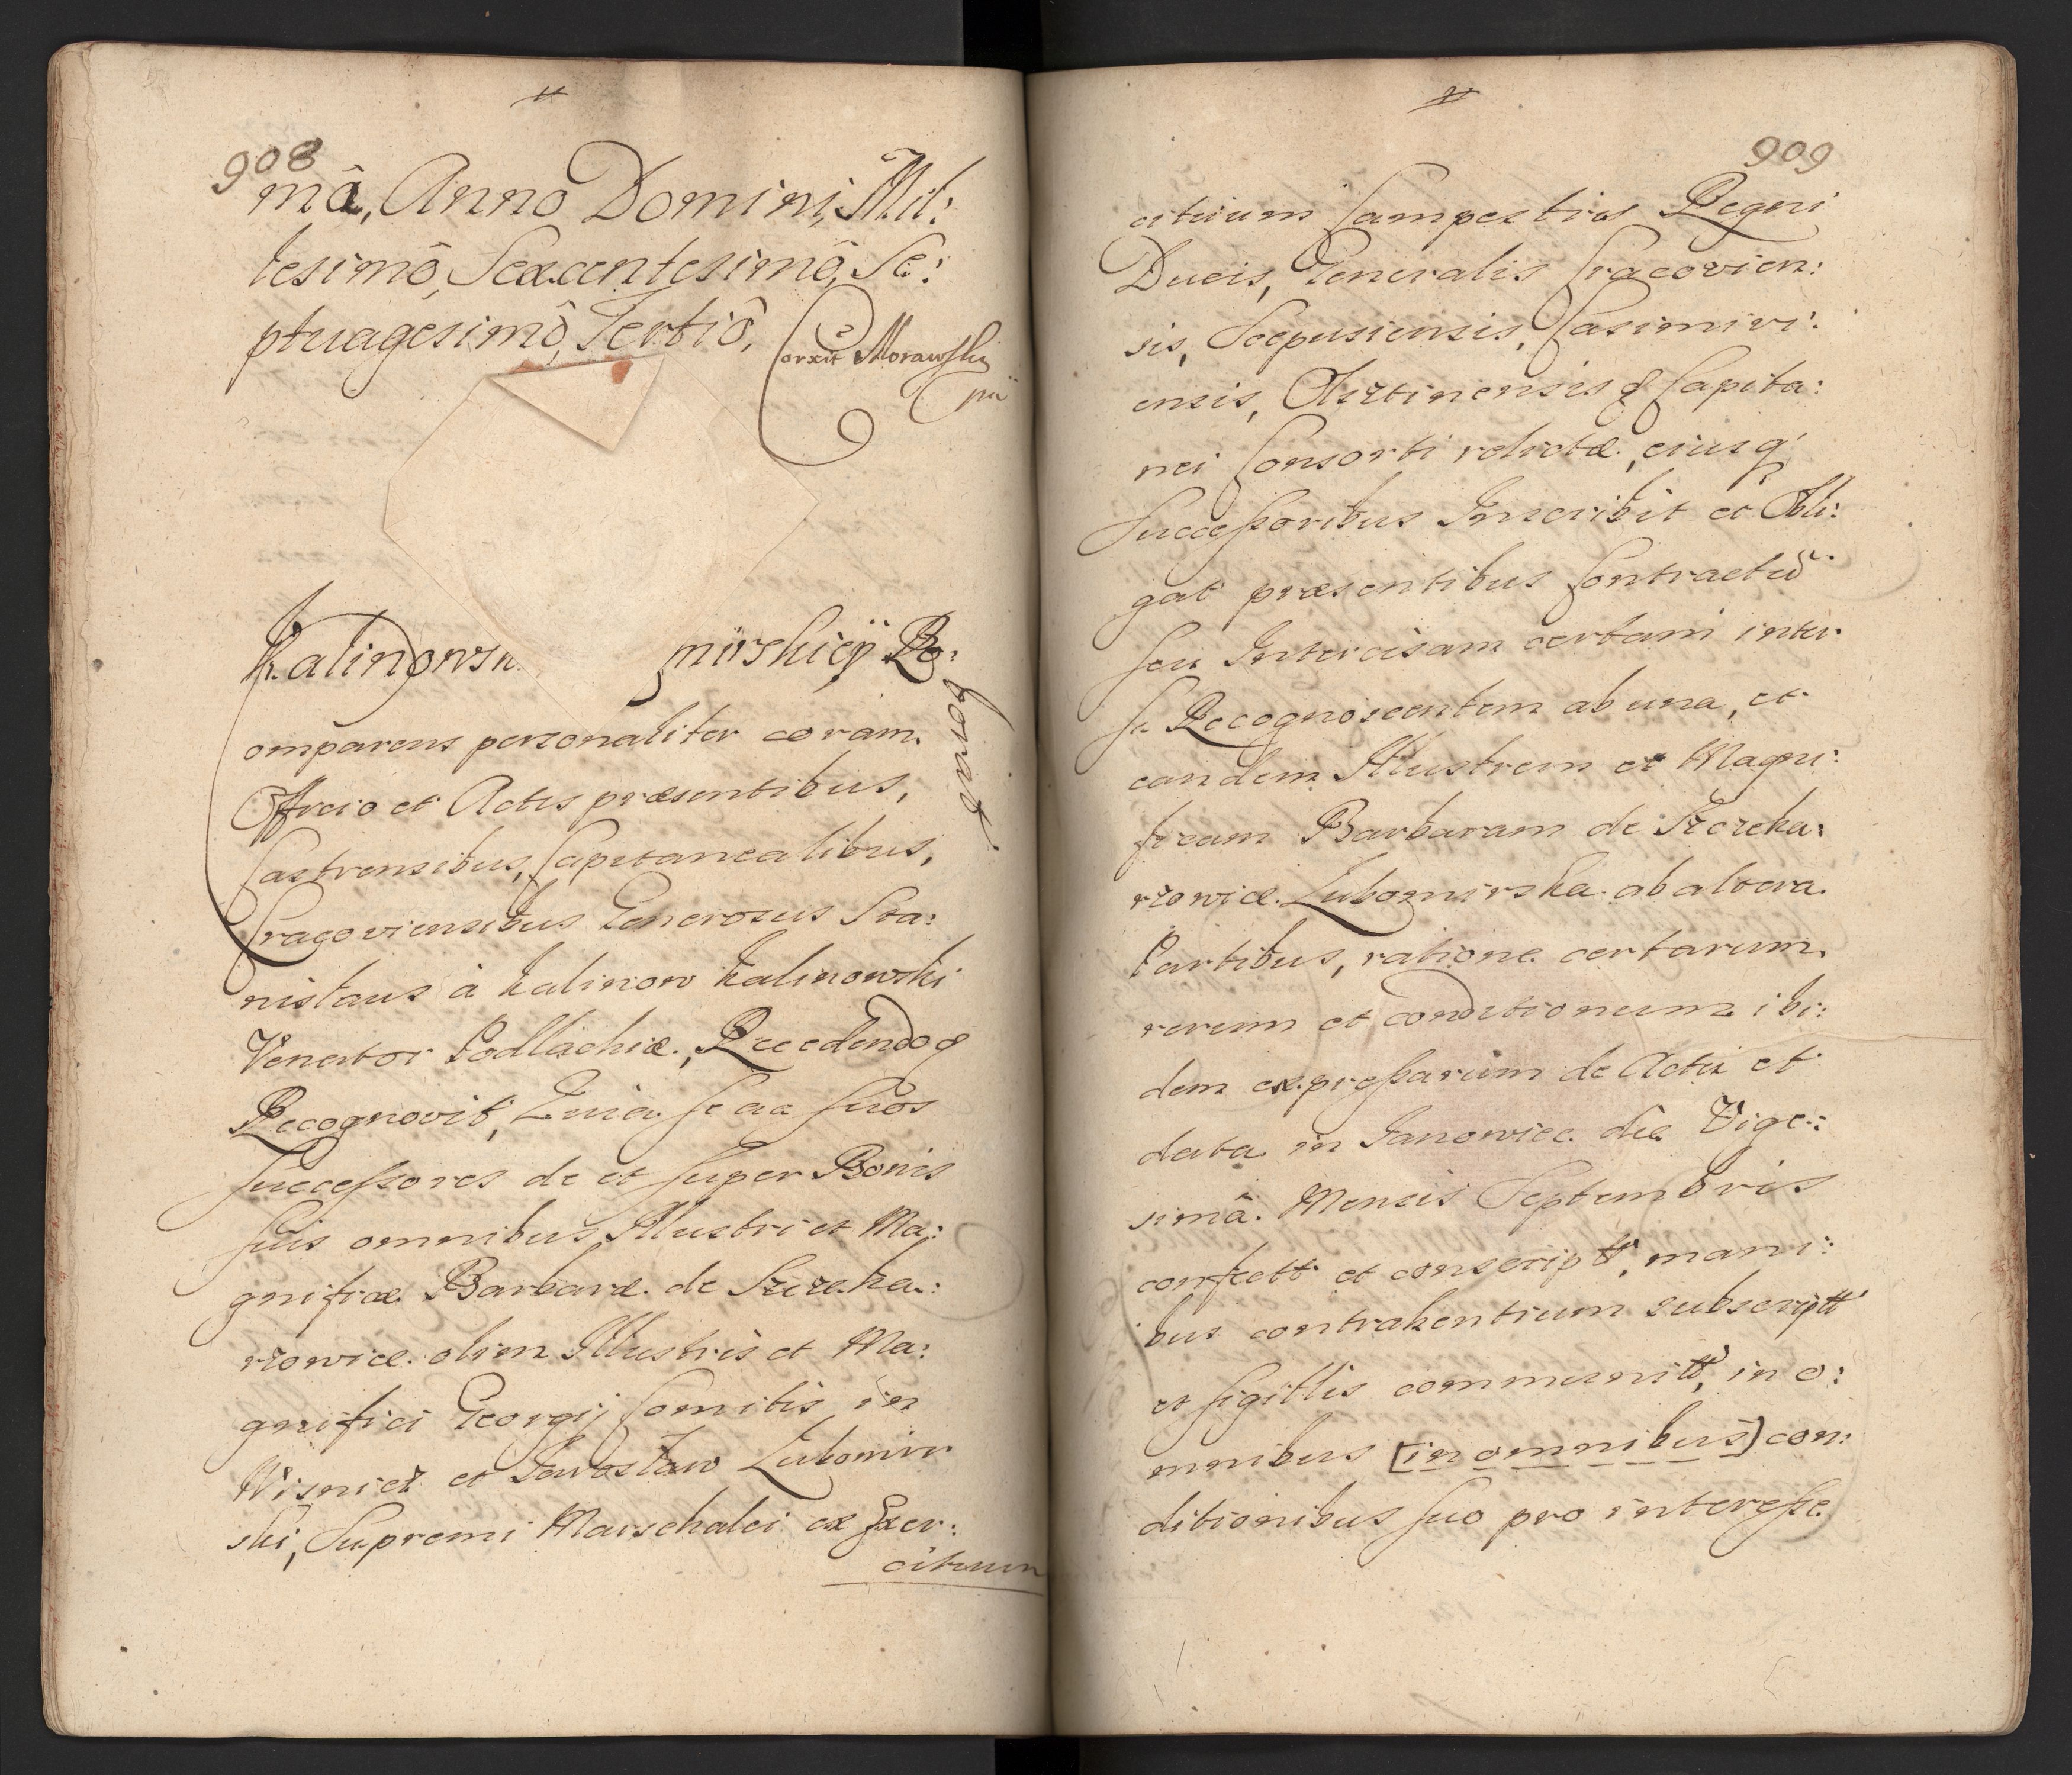 908
mâ, Anno Domini, Mil:
lesimô, Sexcentesimô, Se:
ptuagesimô, Tertiô,
Corxit Morawski
mpp
Kalinowsk mirskiey Ro:
borat
omparens personaliter coram
Officio et Actis præsentibus,
Castrensibus, Capitanealibus,
Cracoviensibus Generosus Sta:
nislaus à Kalinow Kalinowski
Venator Podlachiæ, Recedendo &
Recognovit, Quia se ac suos
successores de et super Bonis
suis omnibus Illustri et Ma:
gnificæ Barbaræ de Szczeka:
rzowicæ olim Illustris et Ma:
gnifici Georgij Comitis in
Wisnicz et Jarosław Lubomir
ski, Supremi Marschalci ex Exer:
cituum
909
cituum Campestris Regni
Ducis, Generalis Cracovien:
sis, Scepusiensis, Casimiri:
ensis, Olsztinensis & Capita:
nei Consorti relictæ, eiusq;
successoribus Inscribit et Obli:
gat præsentibus Contractũ
seu Intercisam certam inter
se Recognoscentem ab una, et
eandem Illustrem et Magni:
ficam Barbaram de Szczeka:
rzowicæ Lubomirska ab altera
Partibus, ratione certarum
rerum et conditionum ibi:
dem expressarum de Actu et
data in Janowiec die Vige:
simâ Mensis Septembris
confectt et conscriptt, mani:
bus contrahentium subscriptt
et sigillis communitt, in o:
mnibus [in omnibus] con:
ditionibus suo pro interesse